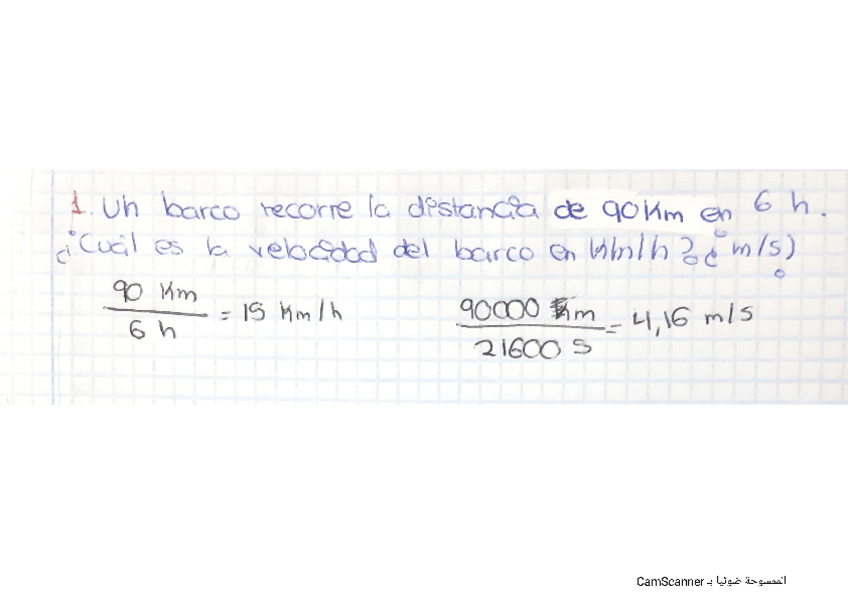 1. Un barco recorre la distancia de 90 Km en 6 h.
¿Cuál es la velocidad del barco en Km/h? ¿m/s?
90 Km
6 h
= 15 Km/h
90000 m
21600 s
= 4,16 m/s
الممسوحة ضوئيا بـ CamScanner